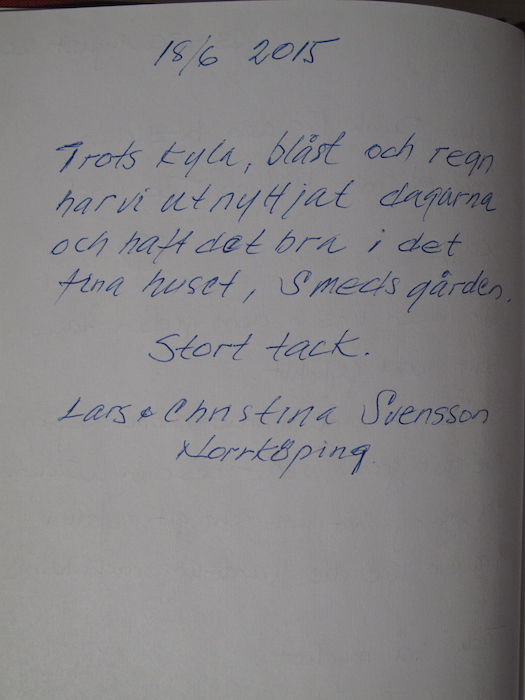 18/6 2015
Trots kyla, blåst och regn
har vi utnyttjat dagarna
och haft det bra i det
fina huset, Smedsgården.
Stort tack.
Lars & Christina Svensson
Norrköping